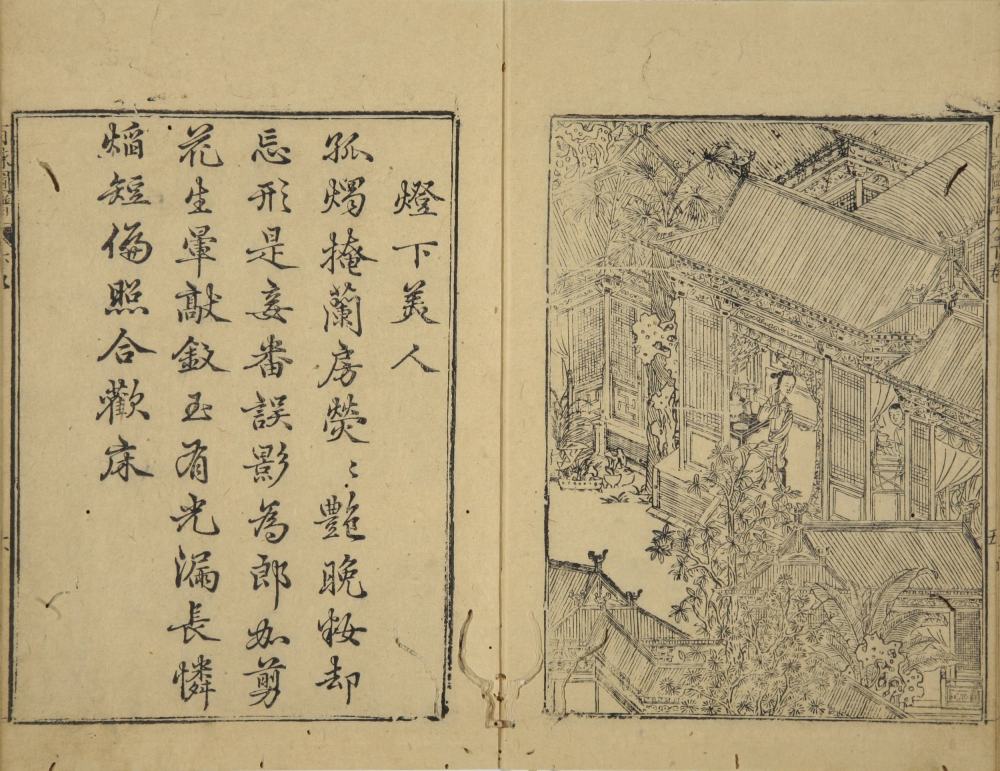 燈下美人
孤燭掩蘭房熒〻艷晚妝却
忘形是妾番誤影為郎如剪
花生暈敲釵玉有光漏長憐
焰短偏照合歡床